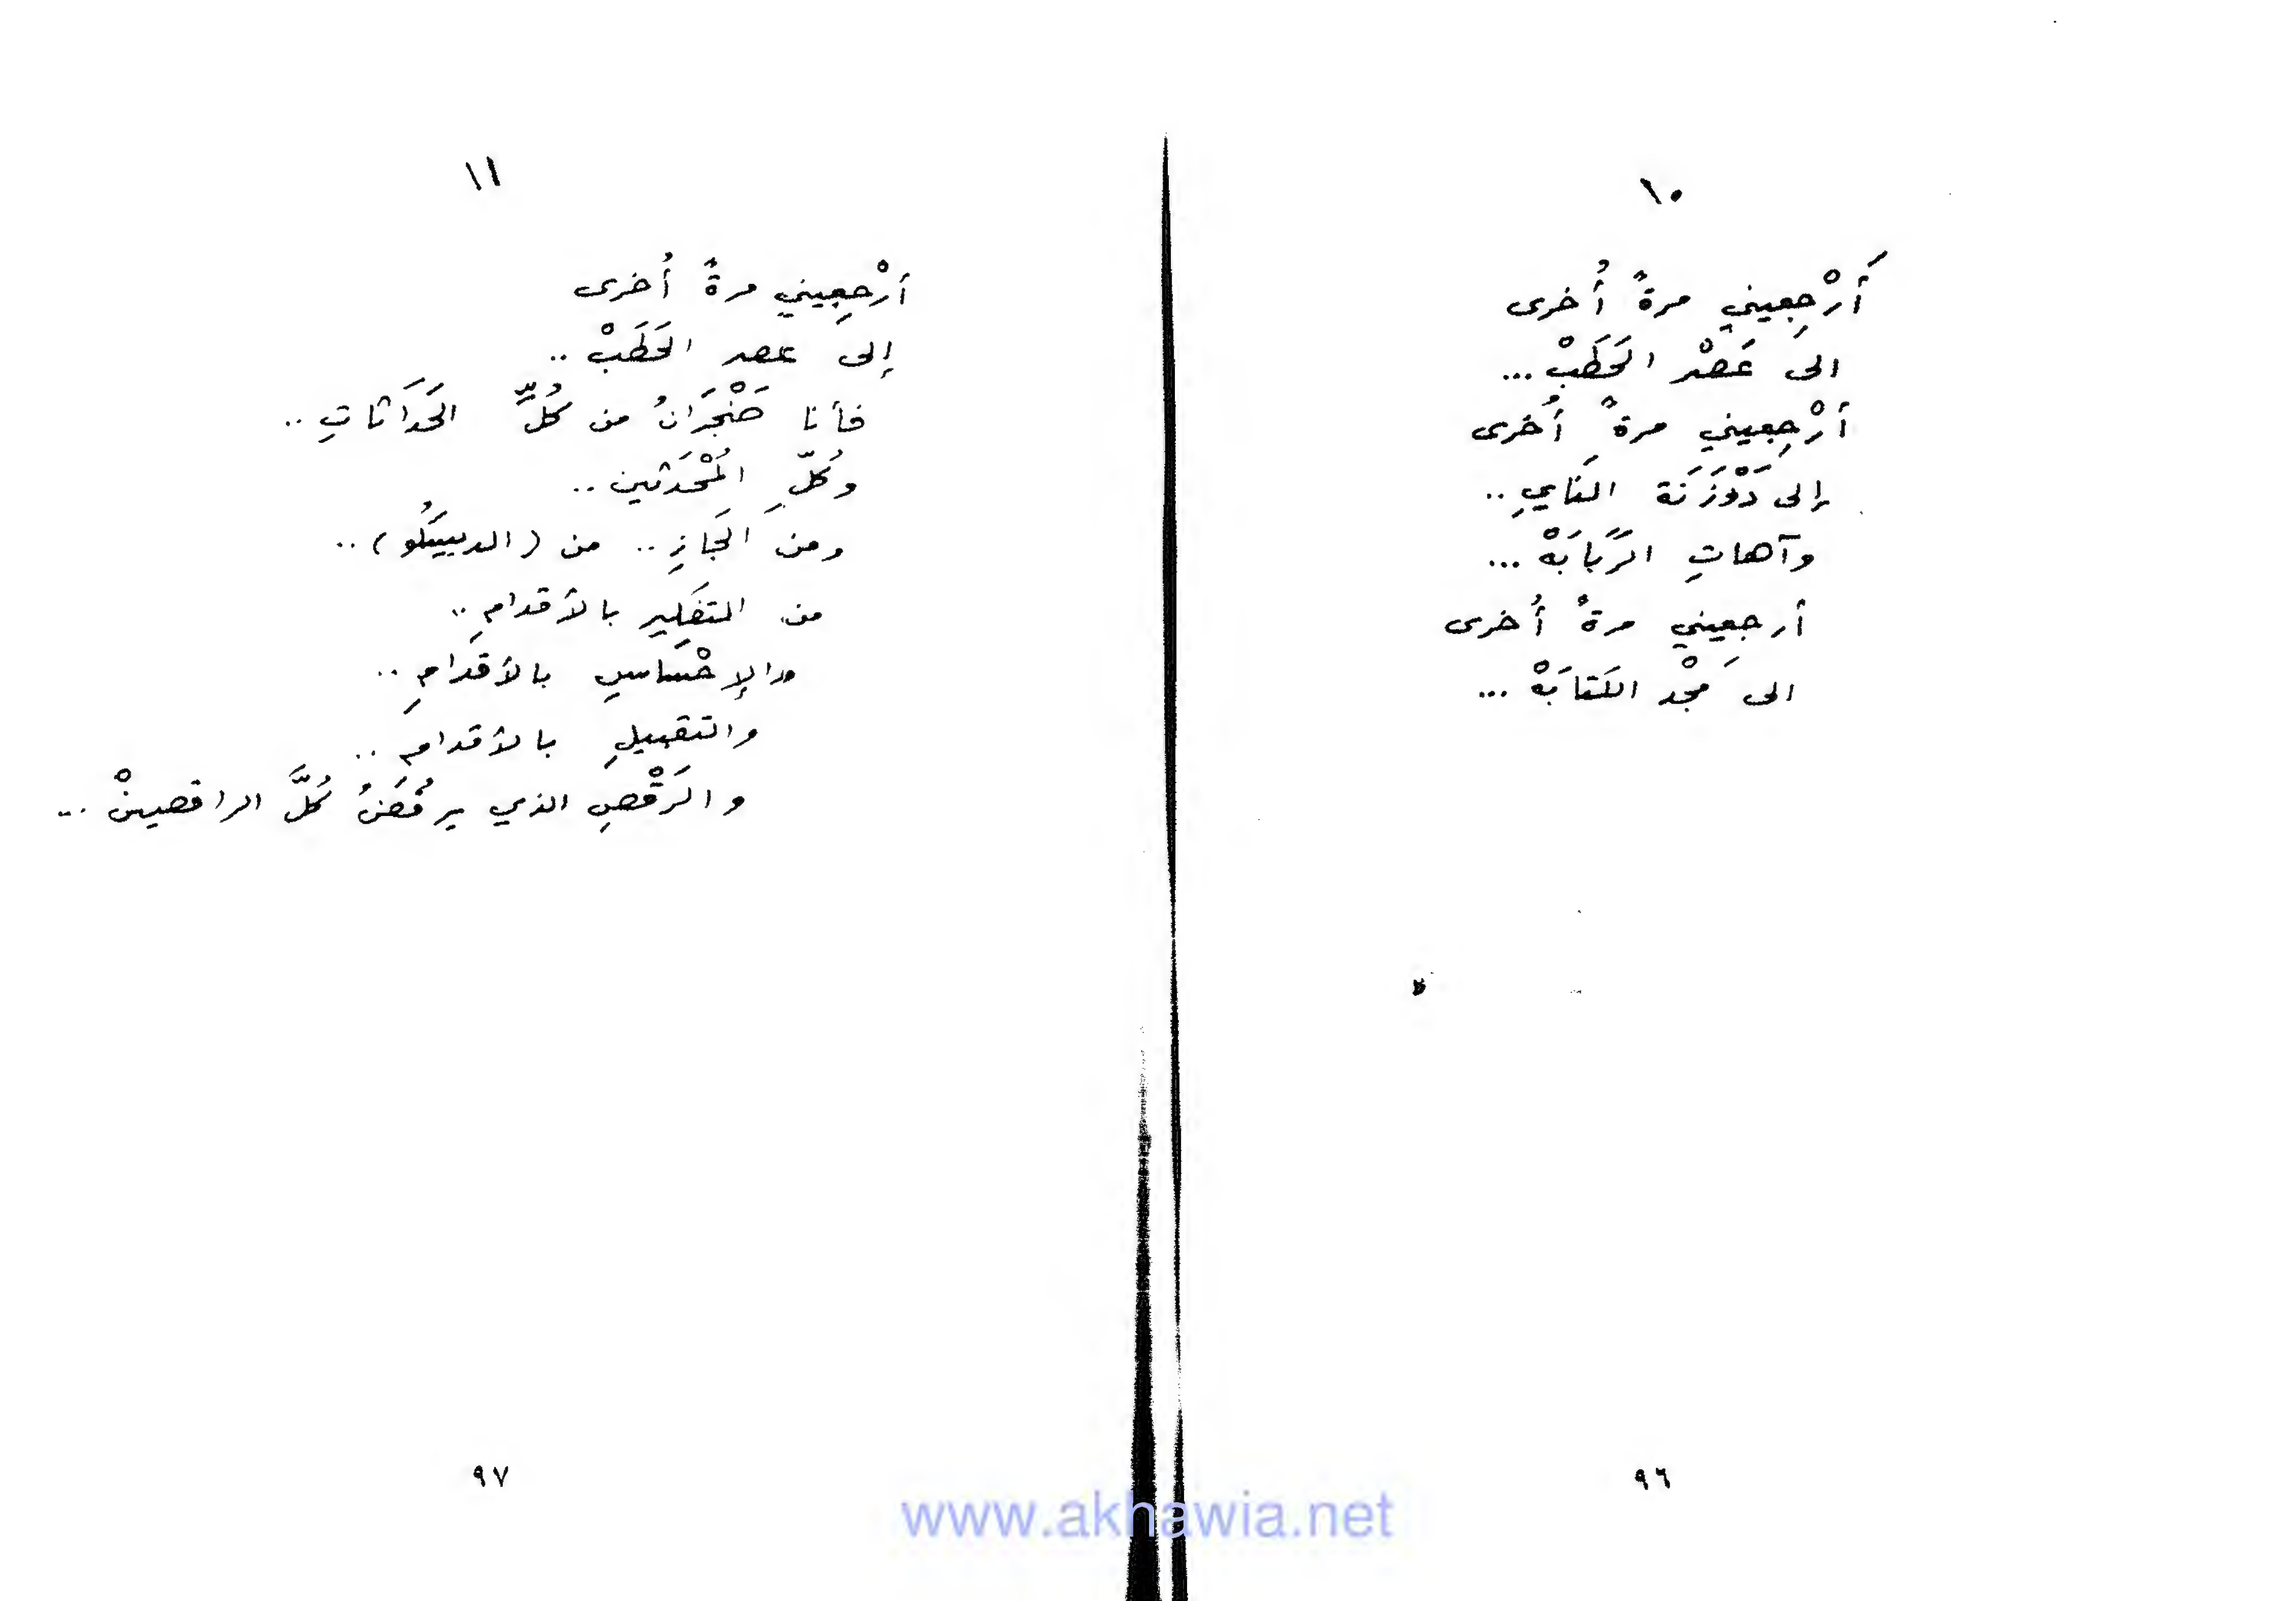 ١٠
أَرْجِعيني مرةً أُخرى
الى عَصْر الحَطَبْ ...
أرْجِعيني مرةً أُخرى
إلى دَوْزَنَة النَايِ ..
وآهاتِ الرَّبابَهْ ...
أرجِعيني مرةً أُخرى
الى مَجْد الكَتابَهْ ...
٩٦
١١
أرْجِعيني مرةً أُخرى
إلى عصر الحَطَبْ ..
فأنا ضَنْجَرَانُ من كُلِّ الحَدَاثاتِ ..
وكُلِّ المُحْدَثين ..
ومن الجَازِ .. من (الديسكُو) ..
من التفكِيرِ بالأقدامِ ..
والإحْسَاسِ بالأقدَامِ ..
والتقبيلِ بالأقدامِ ..
والرَقْصِ الذي يرفُضُ كُلَّ الراقصينْ ...
٩٧
www.akhawia.net